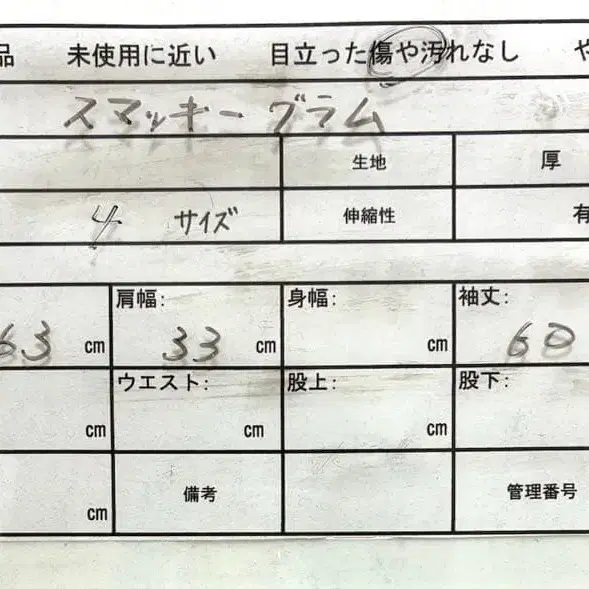 品 未使用に近い 目立った傷や汚れなし や
スマッキーグラム
生地 厚
4 サイズ 伸縮性 有
肩幅: 身幅: 袖丈:
63 cm 33 cm cm 60
ウエスト: 股上: 股下:
cm cm cm
cm 備考 管理番号